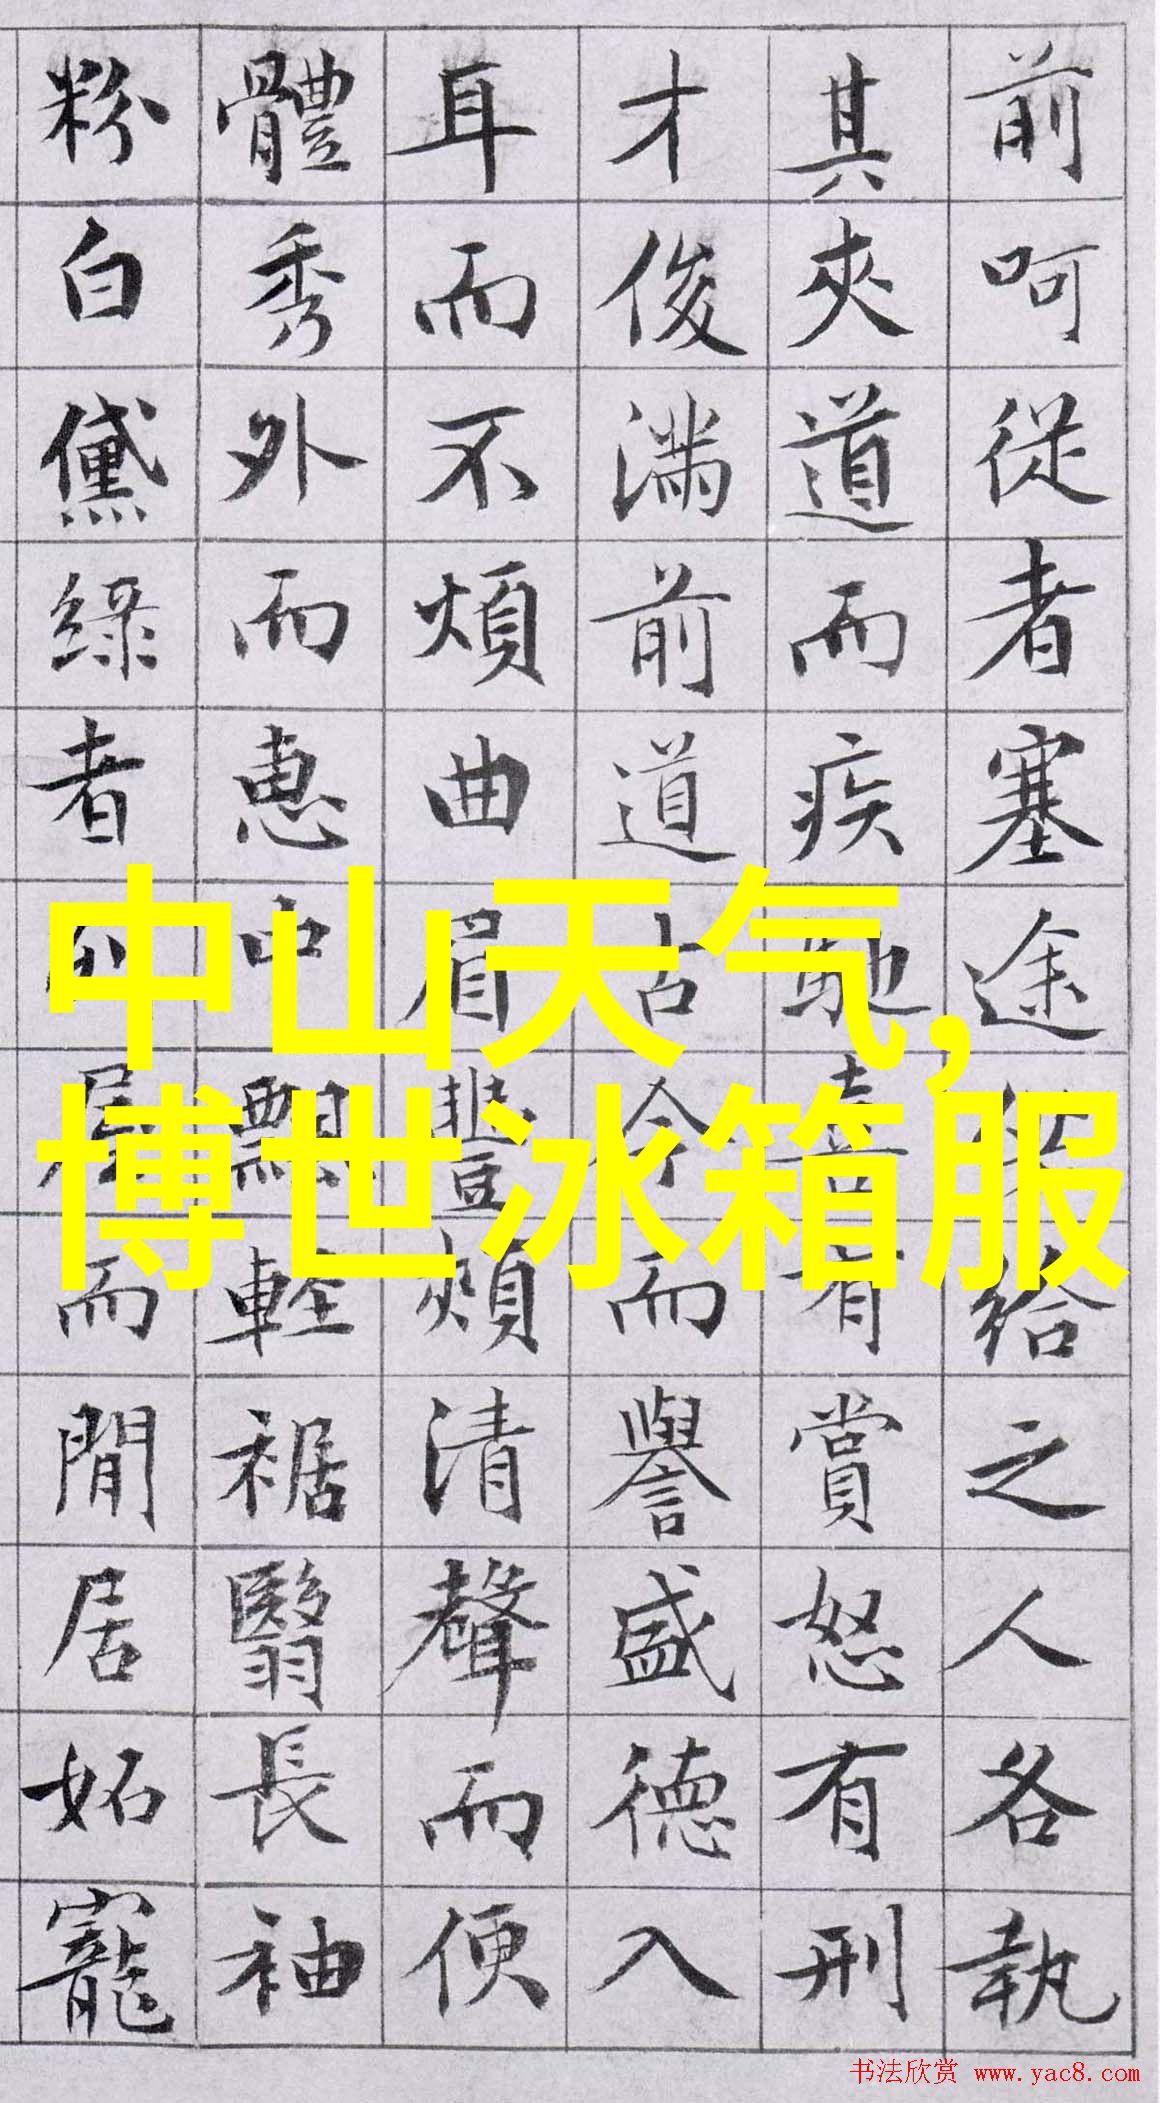 前呵從者塞途供給之人各執
其夾道而疾馳喜有賞怒有刑
才俊滿前道古今而譽盛德入
耳而不煩曲眉豐頰清聲而便
體秀外而惠中飄輕裾翳長袖
粉白黛綠者列屋而閒居妬寵
中山天气,
博世冰箱服
书法欣赏 www.yac8.com